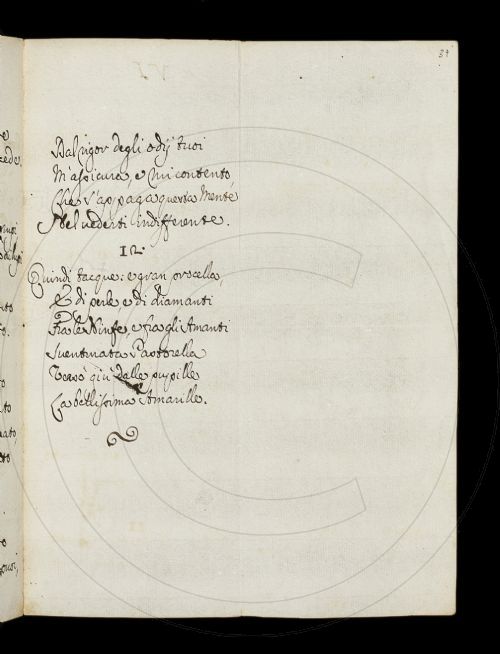 39
Dal rigor degli odij tuoi
M'assicura, e mi contento
Che s'appaga questa Mente
Nel vederti indifferente.
12
Quindi tacque: e gran procella,
E di perle, e di diamanti
Fra le Ninfe, e fra gli Amanti
Sventurata Pastorella
Versò giù dalle pupille
La bellissima Amarille.